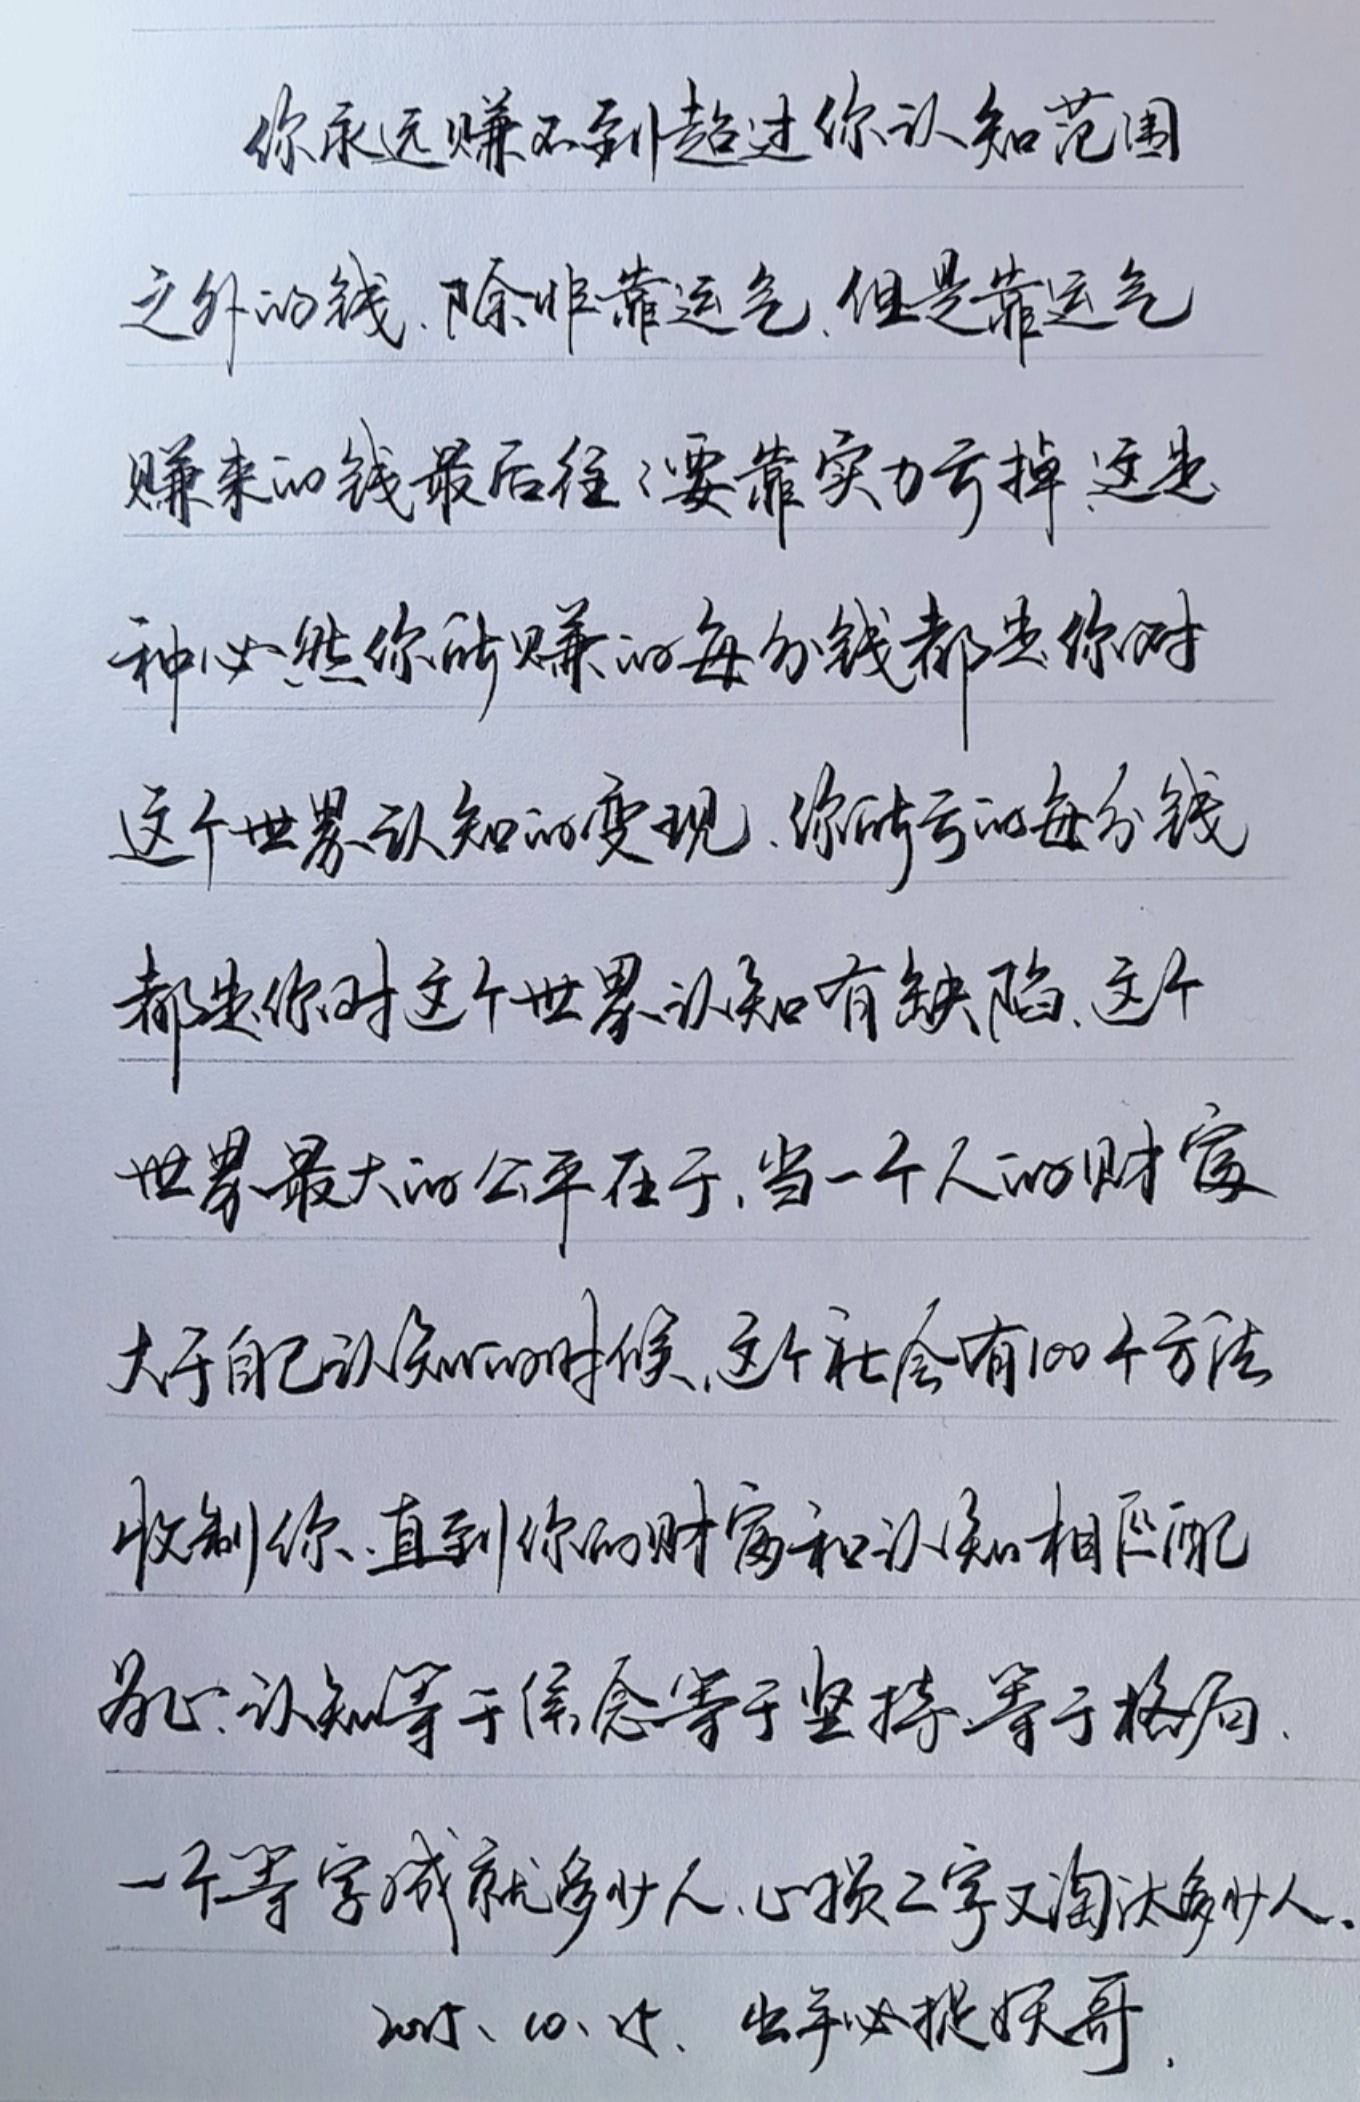 你永远赚不到超过你认知范围
之外的钱、除非靠运气、但是靠运气
赚来的钱最后往往要靠实力亏掉、这是
种必然你所赚的每分钱都是你对
这个世界认知的变现、你所亏的每分钱
都是你对这个世界认知有缺陷、这个
世界最大的公平在于、当一个人的财富
大于自己认知的时候、这个社会有100个方法
收割你、直到你的财富和认知相匹配
为止、认知等于信念等于坚持、等于格局、
一个等字成就多少人、止损二字又淘汰多少人.
2025、10、25、出手必捉妖哥.